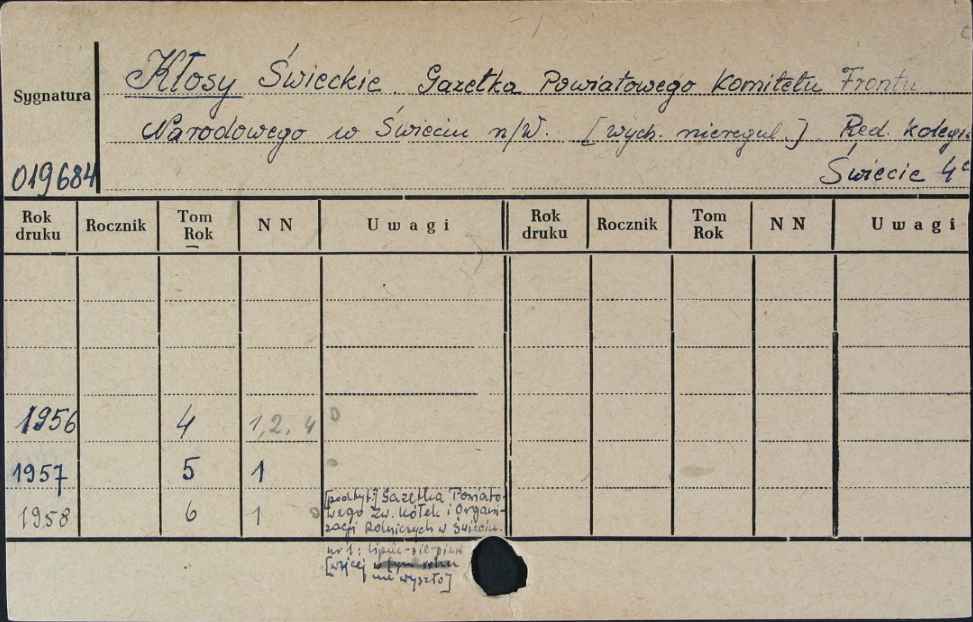 Kłosy Świeckie. Gazetka Powiatowego Komitetu Frontu
Sygnatura
Narodowego w Świeciu n/W. [wych. nieregul.] Red. kolegi
019684
Świecie 4°
Rok druku Rocznik Tom Rok N N Uwagi Rok druku Rocznik Tom Rok N N Uwagi
1956 4 1, 2, 4
1957 5 1
1958 6 1 [podtyt.] Gazetka Powiato-
wego Zw. Kółek i Organi-
zacji Rolniczych w Świeciu.
nr 1: lipiec-sierpień
[więcej w tym roku
nie wyszło]